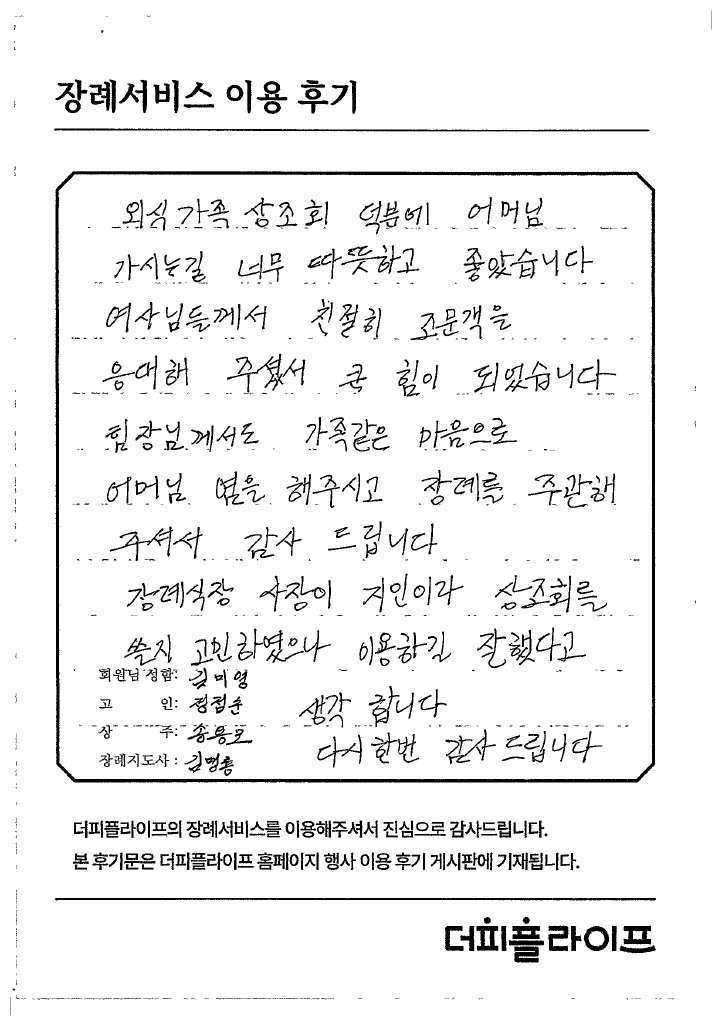 장례서비스 이용 후기
외식가족 상조회 덕분에 어머님
가시는길 너무 따뜻하고 좋았습니다
여사님들께서 친절히 조문객을
응대해 주셨서 큰 힘이 되었습니다
팀장님께서도 가족같은 마음으로
어머님 염을 해주시고 장례를 주관해
주셔서 감사 드립니다
장례식장 사장이 지인이라 상조회를
쓸지 고민하였으나 이용하길 잘했다고
회원님 성함: 김미영
고 인: 정점순
생각 합니다
상 주:
다시한번 감사드립니다
장례지도사: 김명홍
더피플라이프의 장례서비스를 이용해주셔서 진심으로 감사드립니다.
본 후기문은 더피플라이프 홈페이지 행사 이용 후기 게시판에 기재됩니다.
더피플라이프